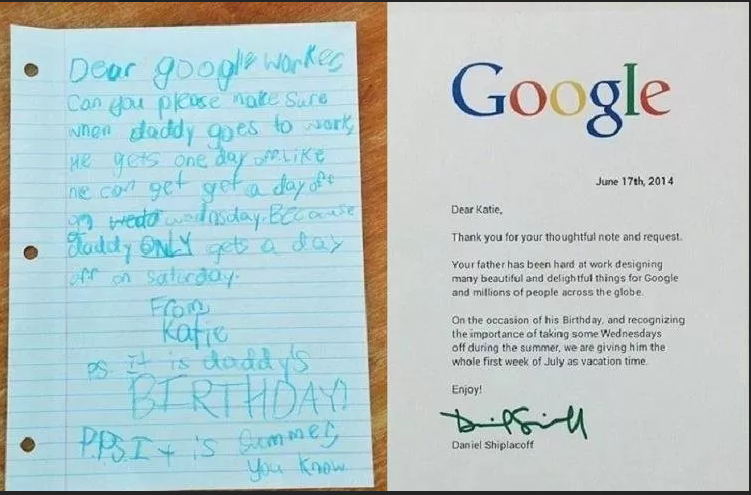 Dear google worker
Can you please make sure
when daddy goes to work,
He gets one day off. Like
he can get get a day off
on wedo wednsday. Because
daddy ONLY gets a day
off on saturday.
From,
Katie
P.S. It is daddy's
BIRTHDAY!
P.P.S. It is summer,
you know
Google
June 17th, 2014
Dear Katie,
Thank you for your thoughtful note and request.
Your father has been hard at work designing
many beautiful and delightful things for Google
and millions of people across the globe.
On the occasion of his Birthday, and recognizing
the importance of taking some Wednesdays
off during the summer, we are giving him the
whole first week of July as vacation time.
Enjoy!
Daniel Shiplacoff